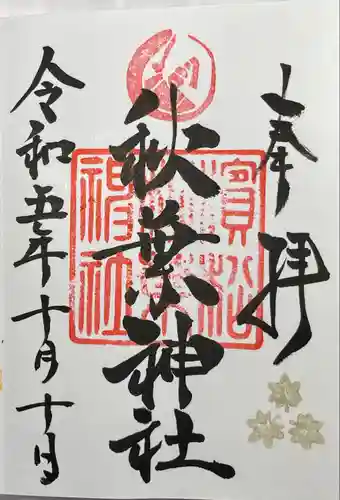 奉拝
秋葉神社
令和五年十月十日